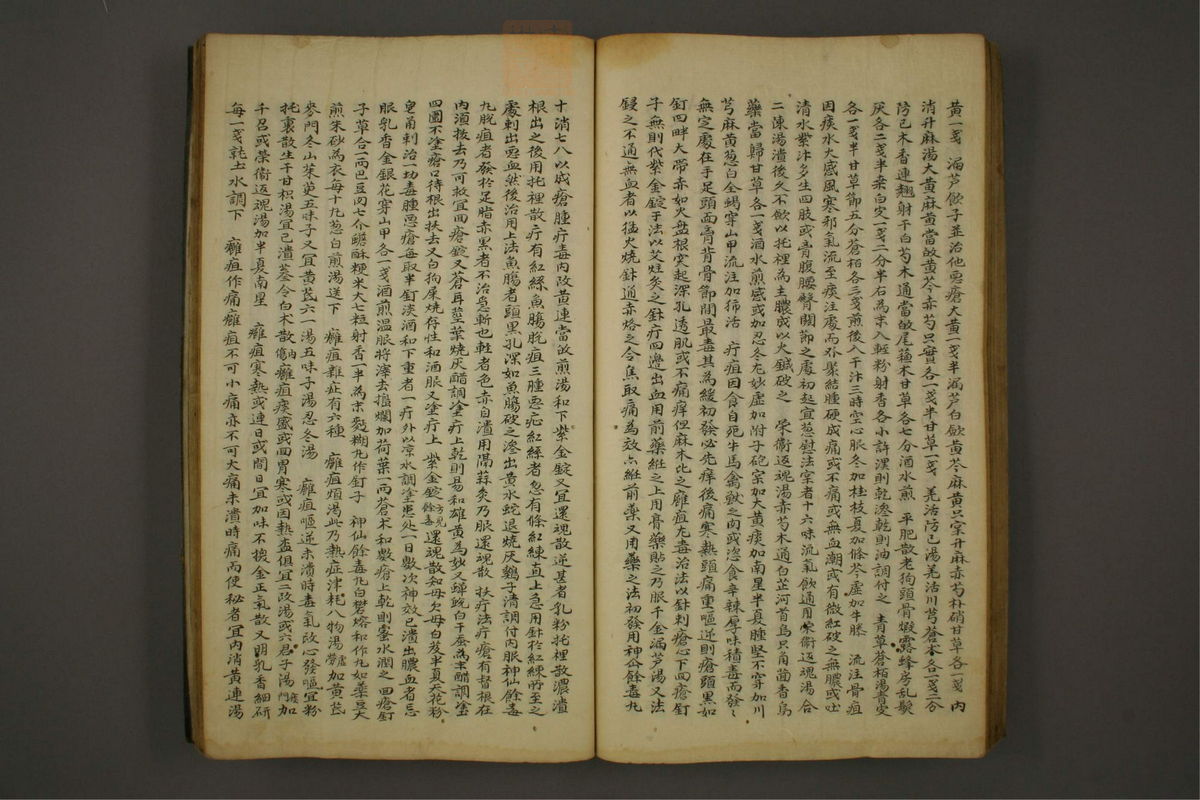 黃一戔 漏芦飮子並治他惡瘡大黃一戔半漏芦白飮黃芩麻黃只穼升麻赤芍朴硝甘草各一戔 內
消升麻湯大黃麻黃當故黃芩赤芍只實各一戔半甘草一戔 羌活防己湯羌活川芎蒼本各一戔二分
防己木香連翹射干白芍木通當故尾蘓木甘草各七分酒水煎 平肥散老狗頭骨煆露蜂房乱髮
灰各二戔半桒白皮一戔二分半右為末入輕粉射香各小許濕則乾滲乾則油調付之 青草蒼栢湯青皮
各一戔半甘草節五分蒼栢各三戔煎後入干汁三時空心服冬加桂枝夏加條芩虛加牛膝 流注骨疽
因痰水大感風寒邪氣流至痰注處而外聚結腫硬成痛或不痛或無血潮或有微紅破之無膿或出
清水紫汁多生四肢或膏腹腰臀関節之處初起宜葱慰法穼者十六味流氣飮通用荣衛返魂湯合
二陳湯潰後久不飮以托裡為主膿成以火鍼破之 荣衛返魂湯赤芍木通白芷何首烏只角茴香烏
藥當歸甘草各一戔酒水煎感或加忍冬尤妙虛加附子砲穼加大黃痰加南星半夏腫堅不穿加川
芎麻黃葱白全蝎穿山甲流注加柿活 疔疽因食自死牛馬禽獸之肉或恣食辛辣厚味積毒而發
無定處在手足頭面膏背骨節間最毒其為緩初發必先痒後痛寒熱頭痛重嘔逆則瘡頭黑如
釘四畔大帶赤如火盤根突起深孔透肌或不痛痒但麻木比之癰疽尤毒治法以針刺瘡心下四瘡釘
子無則代紫金錠子法以艾炷灸之針疔四邊出血用前藥紝之上用膏藥貼之乃服千金漏芦湯又法
鋟之不通無血者以猛火燒針通赤烙之令焦取痛為效亦紝前藥又用藥之法初發用神仚餘毒九
十消七八以成瘡腫疔毒內攻黃連當故煎湯和下紫金錠又宜還魂散逆甚者乳粉托裡散濃潰
根出之後用托裡散疔有紅絲魚腸脫疽三腫惡疕紅絲者忽有條紅練直上急用針於紅練所至之
處刺出惡血然後治用上法魚腸者頭黑孔深如魚腸破之滲出黃水蛇退燒灰鷄子清調付內服神仙餘毒
九脫疽者發於足脂赤黑者不治急斬也輕者色赤自潰用隔蒜灸乃服還魂散 扶疔法疔瘡有督根在
內湏拔去乃可救宜四瘡錠又蒼耳莖葉燒灰醋調塗疔上乾則易和雄黃為妙又蟬蛻白干蚕為末醋調塗
四圍不塗瘡口待根出扶去又白狗屎燒存性和酒服又塗疔上 紫金錠方見餘毒還魂散知母欠母白芨半夏天花粉
皂角刺治一切毒腫惡瘡每取半釘淡酒和下重者一疔外以凉水調塗患处一日數次神效已潰出膿血者忌
服乳香金銀花穿山甲各一戔酒煎温服將滓去搗爛加荷葉一兩蒼朮和數瘡上乾則蜜水潤之 四瘡釘
子草合二兩巴豆肉七介醲酥粳米大七粒射香一半為末麪糊九作釘子 神仙餘毒九白礬熔和作九如菉豆大
煎朱砂為衣每十九葱白煎湯送下 癰疽雜症有六種 癰疽煩渴此乃熱症津耗八物湯虛勞加黃芪
麥門冬山茱萸五味子又宜黃芪六一湯五味子湯忍冬湯 癰疽嘔逆未潰時毒氣攻心發嘔宜粉
托裏散生干甘枳湯宜已潰蔘令白朮散 癰疽痰盛或囬胃寒或因熱盍俱宜二政湯或六君子湯 加
千召或荣衛返魂湯加半夏南星 癰疽寒熱或連日或間日宜加味不換金正氣散又明乳香細研
每一戔乾土水調下 癰疽作痛癰疽不可小痛亦不可大痛未潰時痛而便秘者宜內消黃連湯